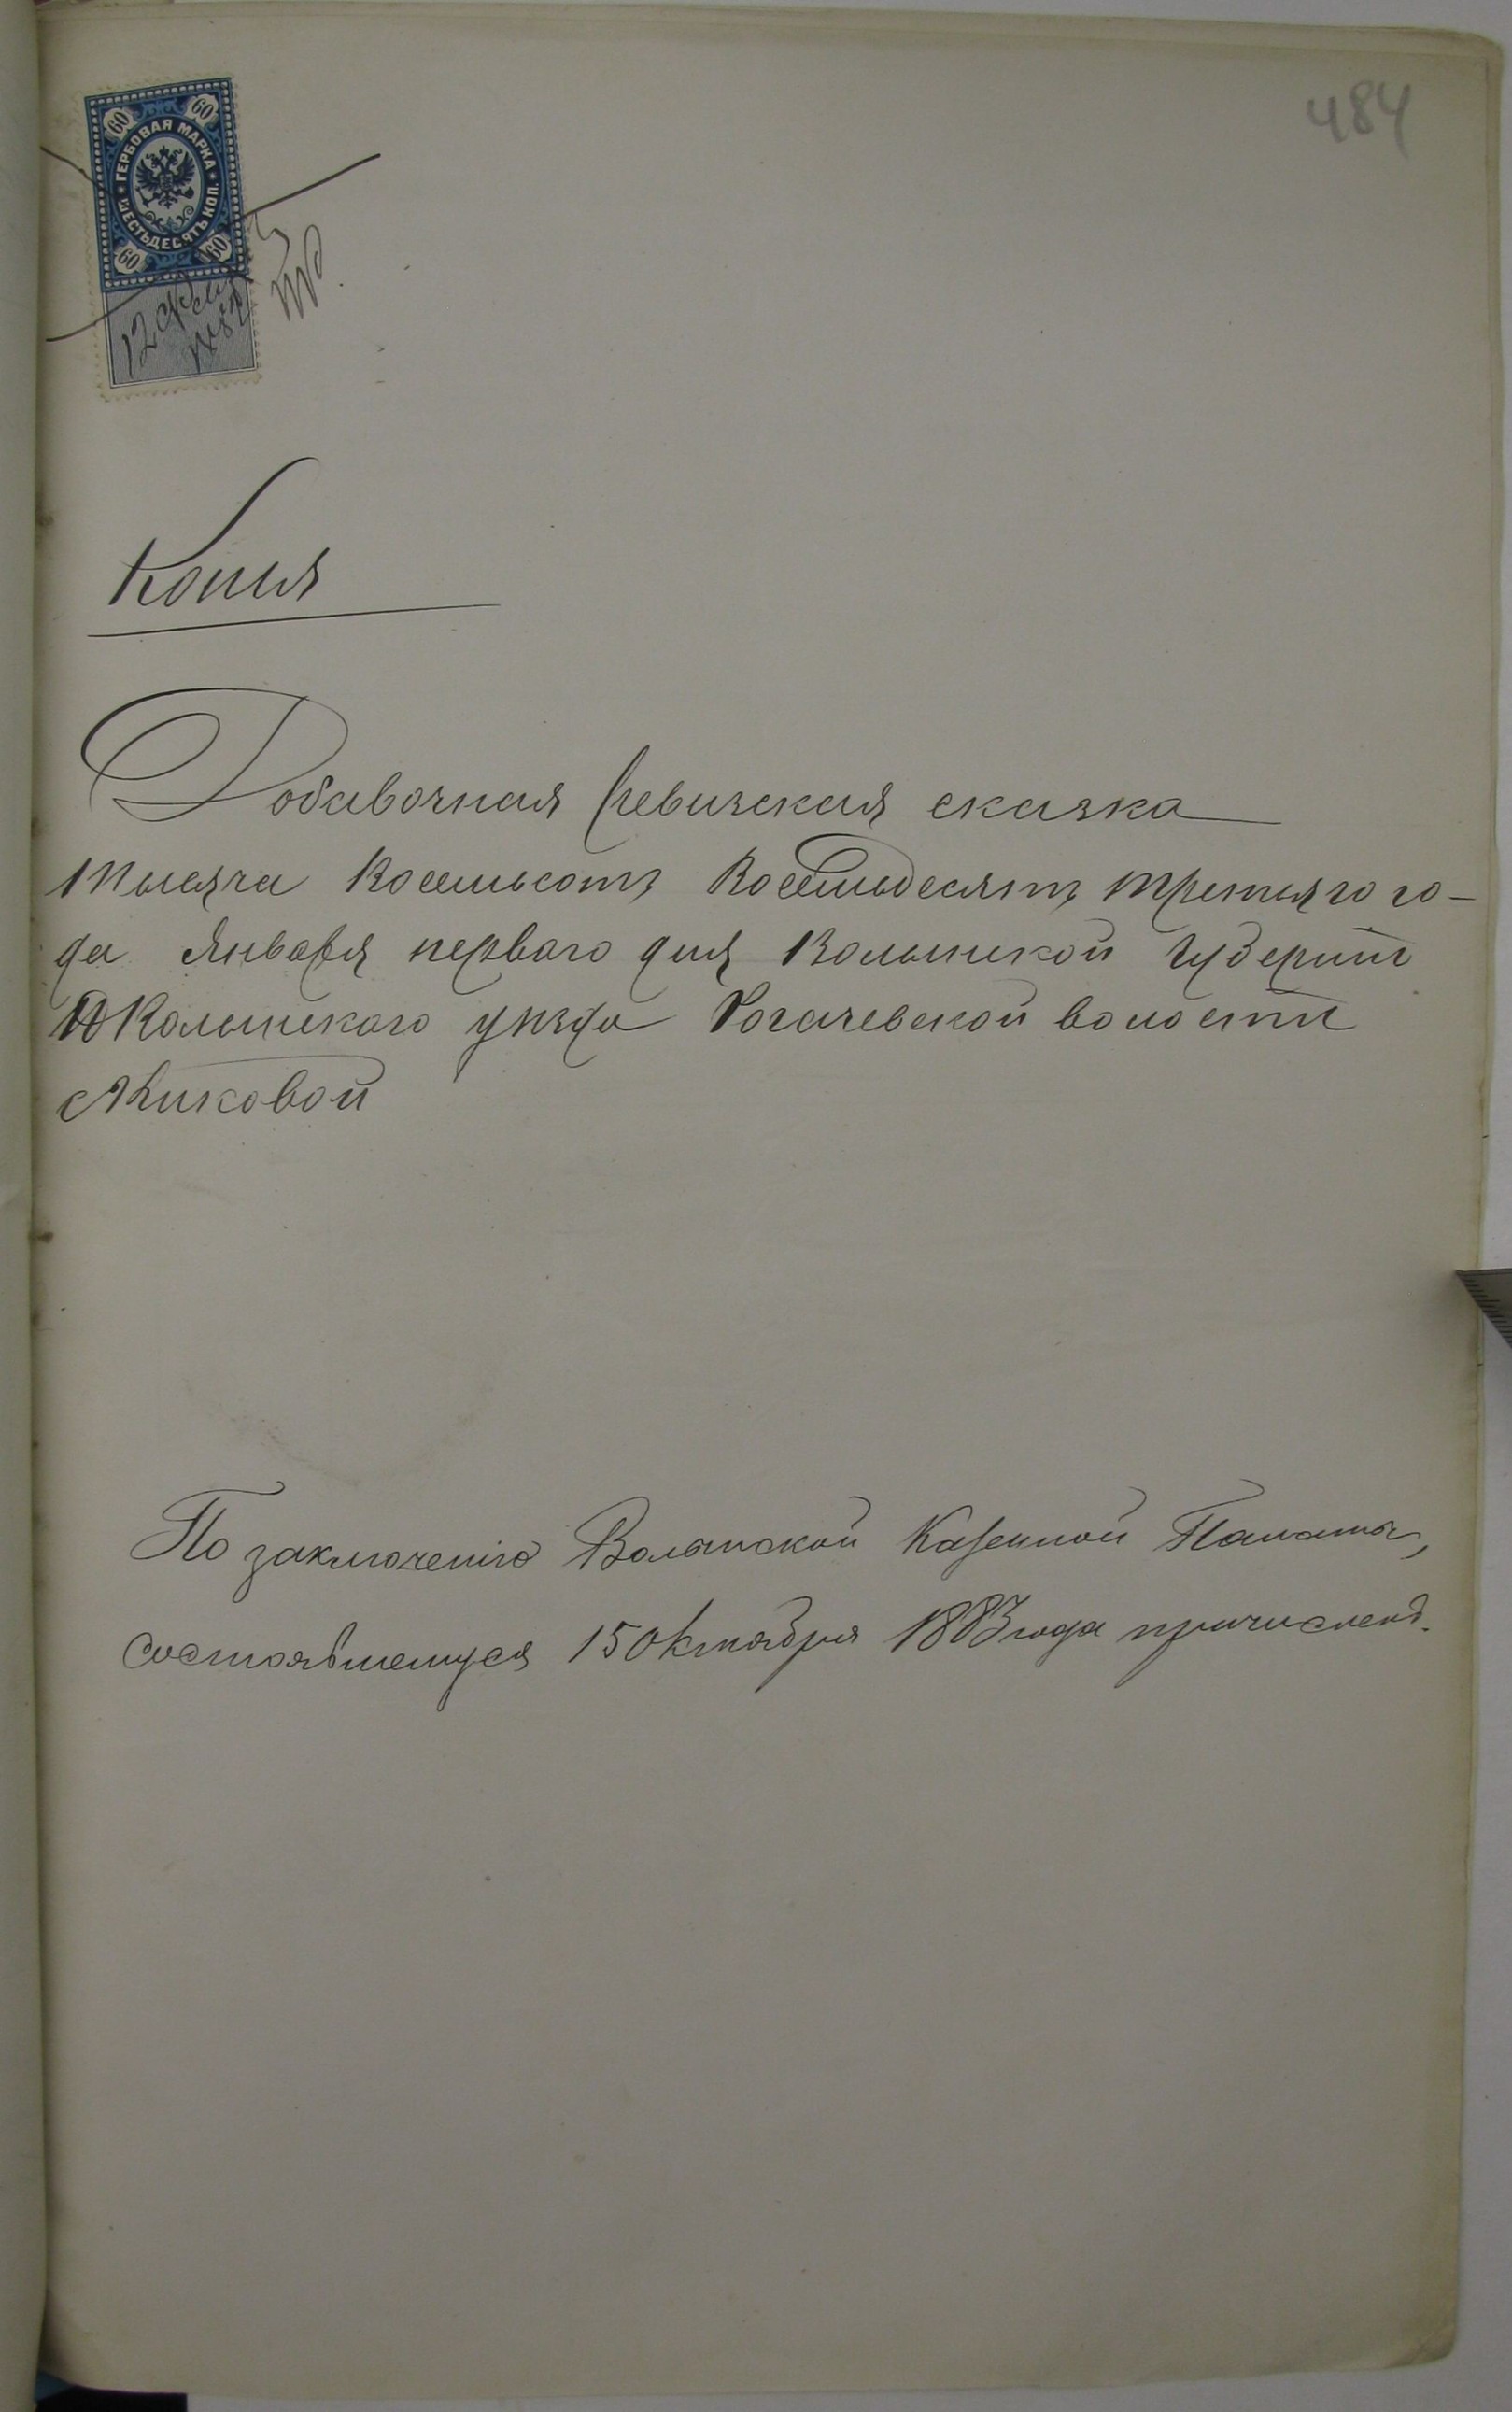 484
60 60
ГЕРБОВАЯ МАРКА
ШЕСТЬДЕСЯТЪ КОП.
60 60
12
Копия
Добавочная Ревизская сказка
тысяча Восемьсотъ Восемьдесятъ третьяго го-
да Января перваго дня Волынской Губерніи
Волынскаго уѣзда Рогачевской волости
По заключенію Волынской Казенной Палаты,
состоявшемуся 15 Октября 1883 года причислены.